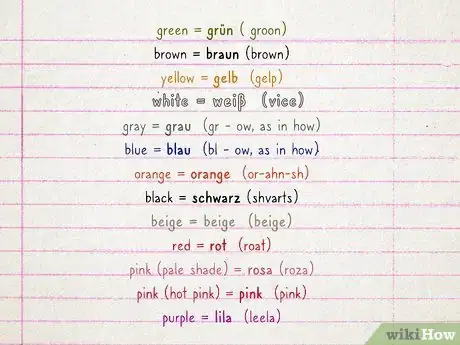 green = grün ( groon)
brown = braun (brown)
yellow = gelb (gelp)
white = weiß (vice)
gray = grau (gr - ow, as in how)
blue = blau (bl - ow, as in how}
orange = orange (or-ahn-sh)
black = schwarz (shvarts)
beige = beige (beige)
red = rot (roat)
pink (pale shade) = rosa (roza)
pink (hot pink) = pink (pink)
purple = lila (leela)
wikiHow